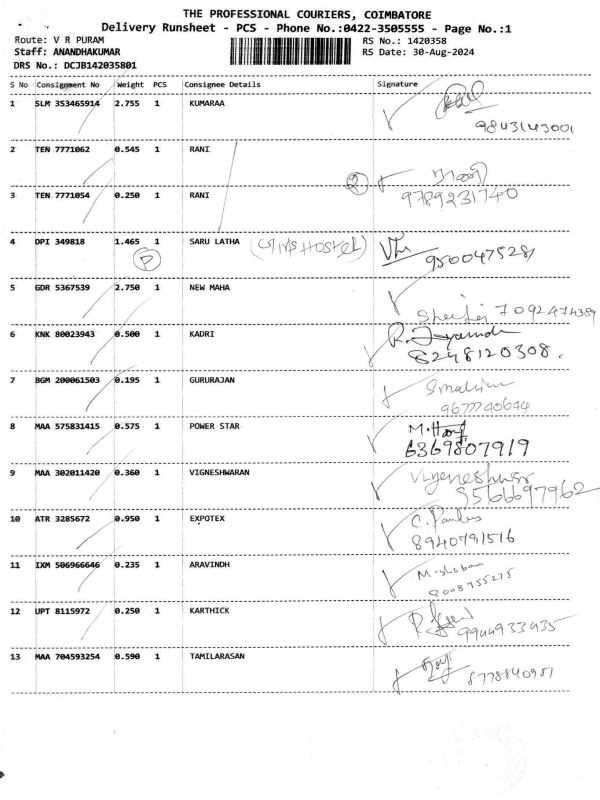 THE PROFESSIONAL COURIERS, COIMBATORE
Delivery Runsheet - PCS - Phone No.:0422-3505555 - Page No.:1
Route: V R PURAM
RS No.: 1420358
Staff: ANANDHAKUMAR
RS Date: 30-Aug-2024
DRS No.: DCJB142035801
S No Consignment No Weight PCS Consignee Details Signature
1 SLM 353465914 2.755 1 KUMARAA
9843143001
2 TEN 7771062 0.545 1 RANI
3 TEN 7771054 0.250 1 RANI 2 9789231740
4 DPI 349818 1.465 1 SARU LATHA (Girls HOSTEL) 9500475281
P
5 GDR 5367539 2.750 1 NEW MAHA
7092474389
6 KNK 80023943 0.500 1 KADRI
8248120308.
7 BGM 200061503 0.195 1 GURURAJAN
9677740644
8 MAA 575831415 0.575 1 POWER STAR
6369807919
9 MAA 302011420 0.360 1 VIGNESHWARAN Vigneshwar
9566697962
10 ATR 3285672 0.950 1 EXPOTEX
8940791516
11 IXM 506966646 0.235 1 ARAVINDH
12 UPT 8115972 0.250 1 KARTHICK
9944933435
13 MAA 704593254 0.590 1 TAMILARASAN
8778840951